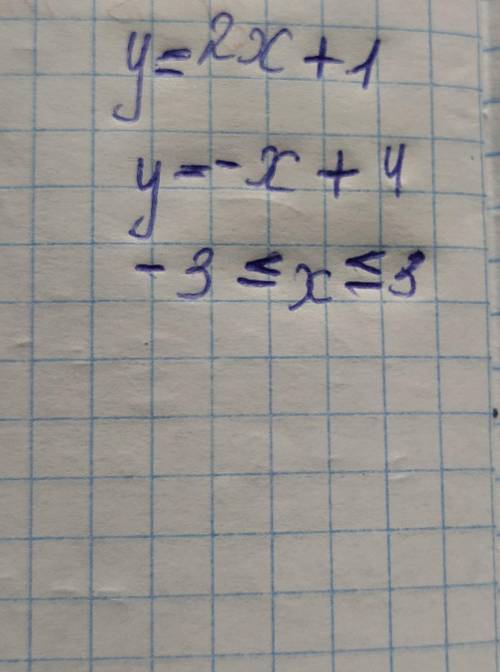 y=2x+1
y=-x+4
-3≤x≤3